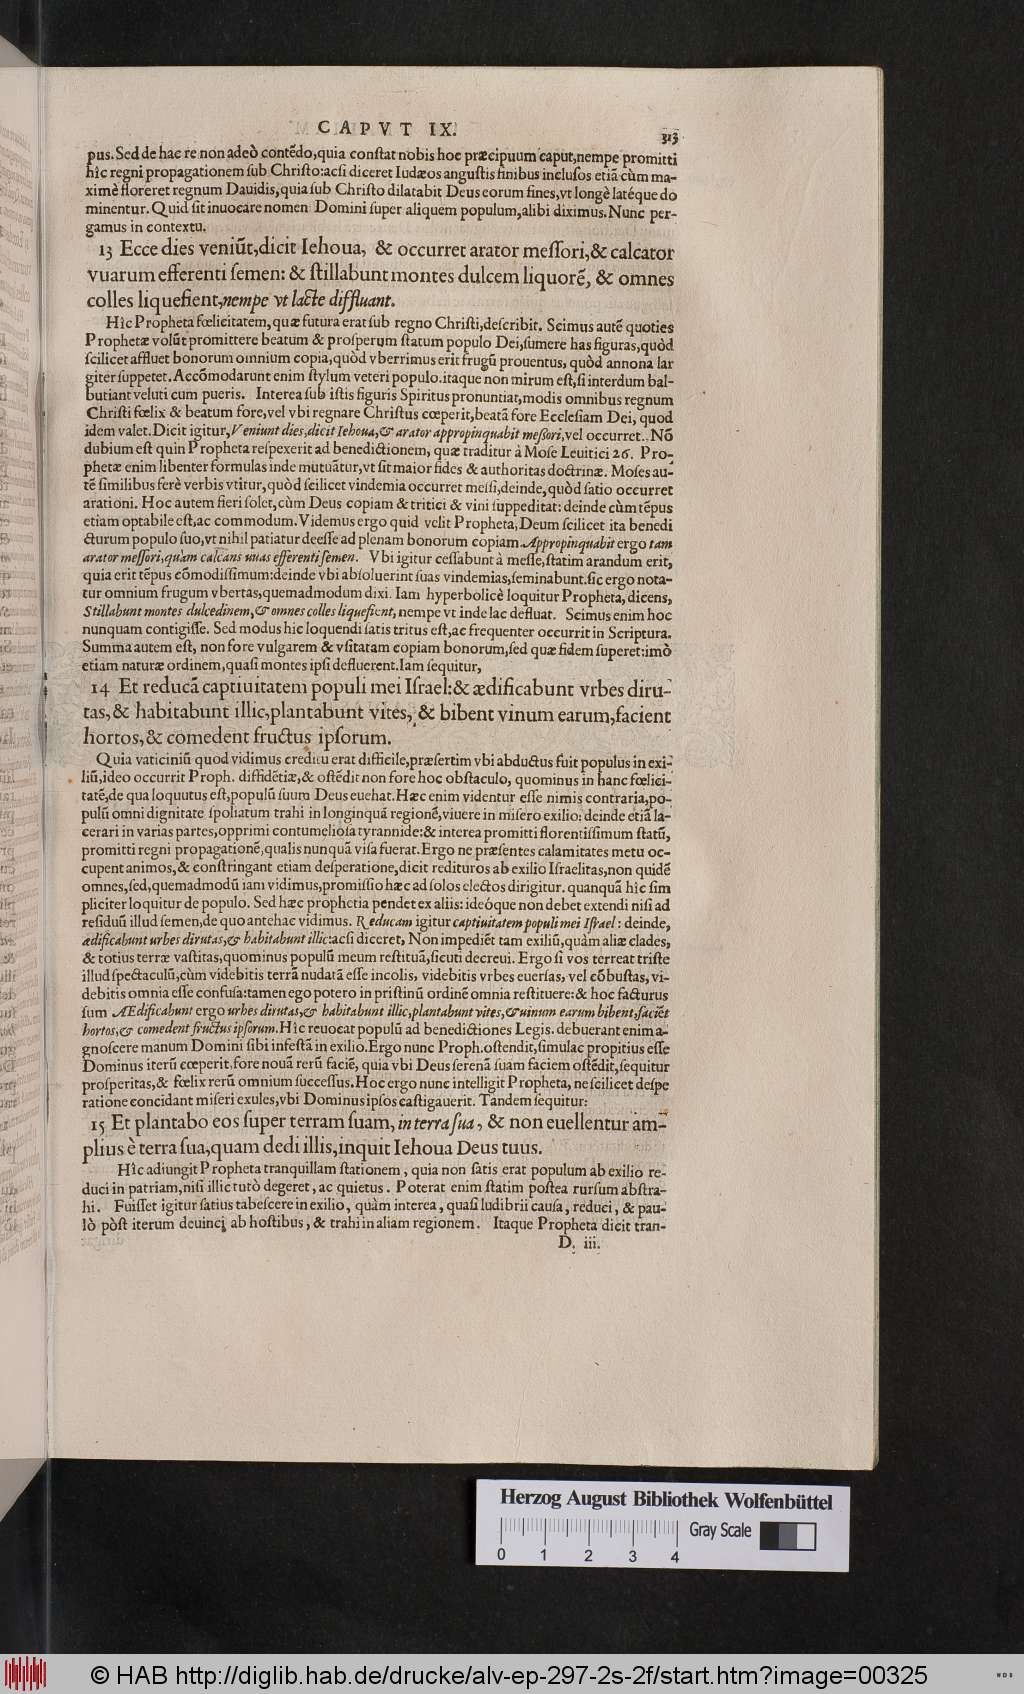 CAPVT IX.
313
pus. Sed de hac re non adeò contẽdo, quia conſtat nobis hoc præcipuum caput, nempe promitti
hîc regni propagationem ſub Chriſto: acſi diceret Iudæos anguſtis finibus incluſos etiã cùm ma-
ximè floreret regnum Dauidis, quia ſub Chriſto dilatabit Deus eorum fines, vt longè latéque do
minentur. Quid ſit inuocare nomen Domini ſuper aliquem populum, alibi diximus. Nunc per-
gamus in contextu.
13 Ecce dies veniũt, dicit Iehoua, & occurret arator meſſori, & calcator
vuarum efferenti ſemen: & ſtillabunt montes dulcem liquorẽ, & omnes
colles liquefient, nempe vt lacte diffluant.
Hîc Propheta fœlicitatem, quæ futura erat ſub regno Chriſti, deſcribit. Scimus autẽ quoties
Prophetæ volũt promittere beatum & proſperum ſtatum populo Dei, ſumere has figuras, quòd
ſcilicet affluet bonorum omnium copia, quòd vberrimus erit frugũ prouentus, quòd annona lar
giter ſuppetet. Accõmodarunt enim ſtylum veteri populo. itaque non mirum eſt, ſi interdum bal-
butiant veluti cum pueris. Interea ſub iſtis figuris Spiritus pronuntiat, modis omnibus regnum
Chriſti fœlix & beatum fore, vel vbi regnare Chriſtus cœperit, beatã fore Eccleſiam Dei, quod
idem valet. Dicit igitur, Veniunt dies, dicit Iehoua, & arator appropinquabit meſſori, vel occurret. Nõ
dubium eſt quin Propheta reſpexerit ad benedictionem, quæ traditur à Moſe Leuitici 26. Pro-
phetæ enim libenter formulas inde mutuãtur, vt ſit maior fides & authoritas doctrinæ. Moſes au-
tẽ ſimilibus ferè verbis vtitur, quòd ſcilicet vindemia occurret meſſi, deinde, quòd ſatio occurret
arationi. Hoc autem fieri ſolet, cùm Deus copiam & tritici & vini ſuppeditat: deinde cùm tẽpus
etiam optabile eſt, ac commodum. Videmus ergo quid velit Propheta, Deum ſcilicet ita benedi
cturum populo ſuo, vt nihil patiatur deeſſe ad plenam bonorum copiam. Appropinquabit ergo tam
arator meſſori, quàm calcans uuas efferenti ſemen. Vbi igitur ceſſabunt à meſſe, ſtatim arandum erit,
quia erit tẽpus cõmodiſſimum: deinde vbi abſoluerint ſuas vindemias, ſeminabunt. ſic ergo nota-
tur omnium frugum vbertas, quemadmodum dixi. Iam hyperbolicè loquitur Propheta, dicens,
Stillabunt montes dulcedinem, & omnes colles liquefient, nempe vt inde lac defluat. Scimus enim hoc
nunquam contigiſſe. Sed modus hic loquendi ſatis tritus eſt, ac frequenter occurrit in Scriptura.
Summa autem eſt, non fore vulgarem & vſitatam copiam bonorum, ſed quæ fidem ſuperet: imò
etiam naturæ ordinem, quaſi montes ipſi defluerent. Iam ſequitur,
14 Et reducã captiuitatem populi mei Iſrael: & ædificabunt vrbes diru-
tas, & habitabunt illic, plantabunt vites, & bibent vinum earum, facient
hortos, & comedent fructus ipſorum.
Quia vaticiniũ quod vidimus creditu erat difficile, præſertim vbi abductus fuit populus in exi-
liũ, ideo occurrit Proph. diffidẽtiæ, & oſtẽdit non fore hoc obſtaculo, quominus in hanc fœlici-
tatẽ, de qua loquutus eſt, populũ ſuum Deus euehat. Hæc enim videntur eſſe nimis contraria, po-
pulũ omni dignitate ſpoliatum trahi in longinquã regionẽ, viuere in miſero exilio: deinde etiã la-
cerari in varias partes, opprimi contumelioſa tyrannide: & interea promitti florentiſſimum ſtatũ,
promitti regni propagationẽ, qualis nunquã viſa fuerat. Ergo ne præſentes calamitates metu oc-
cupent animos, & conſtringant etiam deſperatione, dicit redituros ab exilio Iſraelitas, non quidẽ
omnes, ſed, quemadmodũ iam vidimus, promiſſio hæc ad ſolos electos dirigitur. quanquã hîc ſim
pliciter loquitur de populo. Sed hæc prophetia pendet ex aliis: ideóque non debet extendi niſi ad
reſiduũ illud ſemen, de quo antehac vidimus. Reducam igitur captiuitatem populi mei Iſrael: deinde,
ædificabunt urbes dirutas, & habitabunt illic: acſi diceret, Non impediẽt tam exiliũ, quàm aliæ clades,
& totius terræ vaſtitas, quominus populũ meum reſtituã, ſicuti decreui. Ergo ſi vos terreat triſte
illud ſpectaculũ, cùm videbitis terrã nudatã eſſe incolis, videbitis vrbes euerſas, vel cõbuſtas, vi-
debitis omnia eſſe confuſa: tamen ego potero in priſtinũ ordinẽ omnia reſtituere: & hoc facturus
ſum Ædificabunt ergo urbes dirutas, & habitabunt illic, plantabunt vites, & uinum earum bibent, faciẽt
hortos, & comedent fructus ipſorum. Hîc reuocat populũ ad benedictiones Legis. debuerant enim a-
gnoſcere manum Domini ſibi infeſtã in exilio. Ergo nunc Proph. oſtendit, ſimulac propitius eſſe
Dominus iterũ cœperit, fore nouã rerũ faciẽ, quia vbi Deus ſerenã ſuam faciem oſtẽdit, ſequitur
proſperitas, & fœlix rerũ omnium ſucceſſus. Hoc ergo nunc intelligit Propheta, ne ſcilicet deſpe
ratione concidant miſeri exules, vbi Dominus ipſos caſtigauerit. Tandem ſequitur:
15 Et plantabo eos ſuper terram ſuam, in terra ſua, & non euellentur am-
plius è terra ſua, quam dedi illis, inquit Iehoua Deus tuus.
Hîc adiungit Propheta tranquillam ſtationem, quia non ſatis erat populum ab exilio re-
duci in patriam, niſi illic tutò degeret, ac quietus. Poterat enim ſtatim poſtea rurſum abſtra-
hi. Fuiſſet igitur ſatius tabeſcere in exilio, quàm interea, quaſi ludibrii cauſa, reduci, & pau-
lò pòſt iterum deuinci ab hoſtibus, & trahi in aliam regionem. Itaque Propheta dicit tran-
D. iii.
Herzog August Bibliothek Wolfenbüttel
Gray Scale
0 1 2 3 4
© HAB http://diglib.hab.de/drucke/alv-ep-297-2s-2f/start.htm?image=00325
WDB